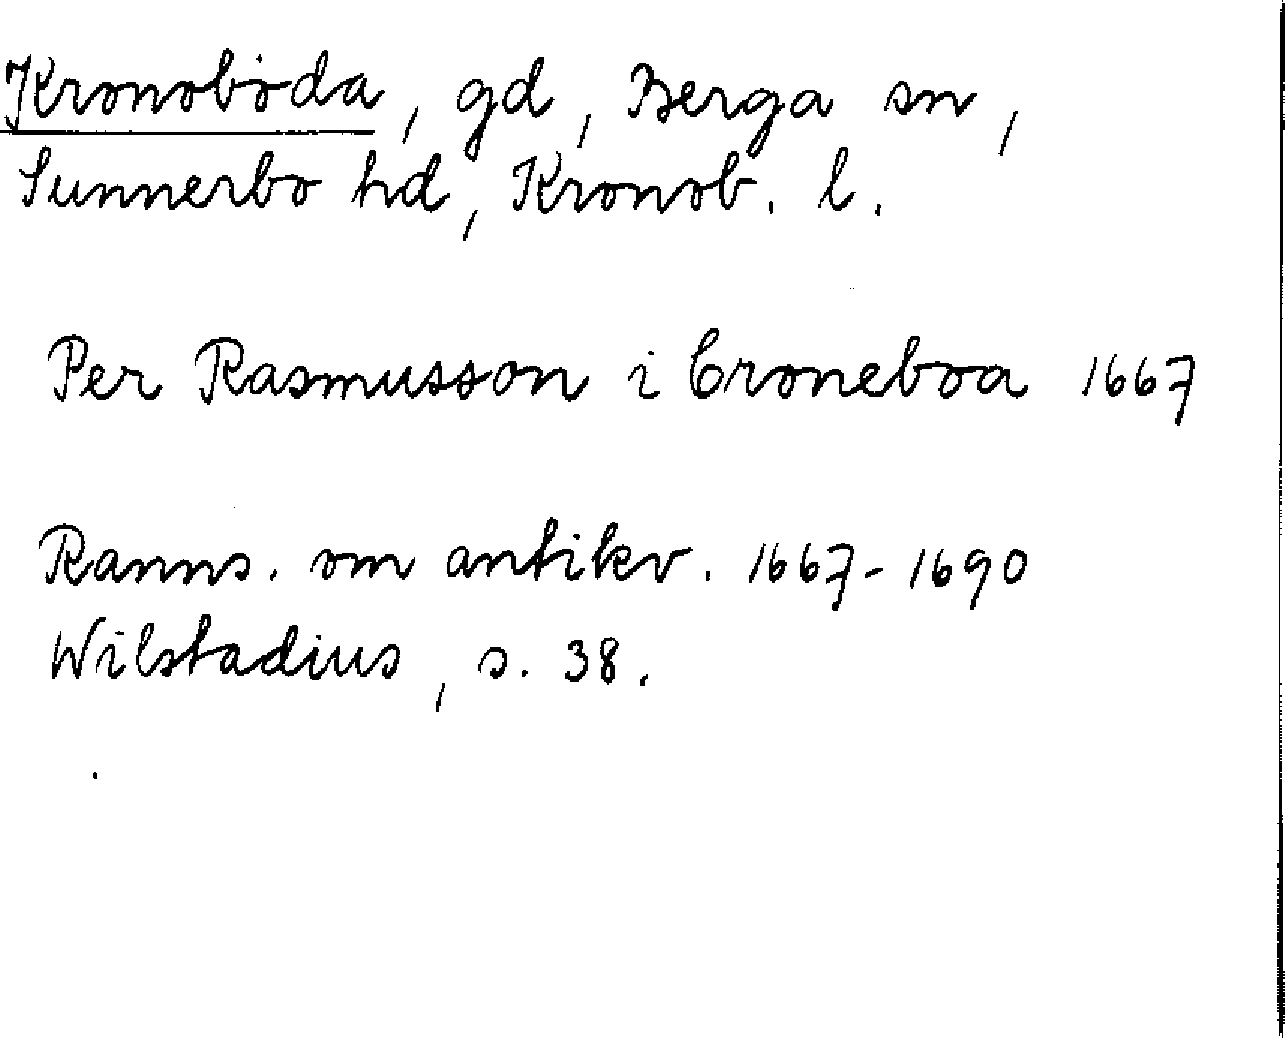 Kronoböda, gd, Berga sn,
Sunnerbo hd, Kronob. l.
Per Rasmusson i Croneboa 1667
Ranns. om antikv. 1667-1690
Wilstadius, s. 38.